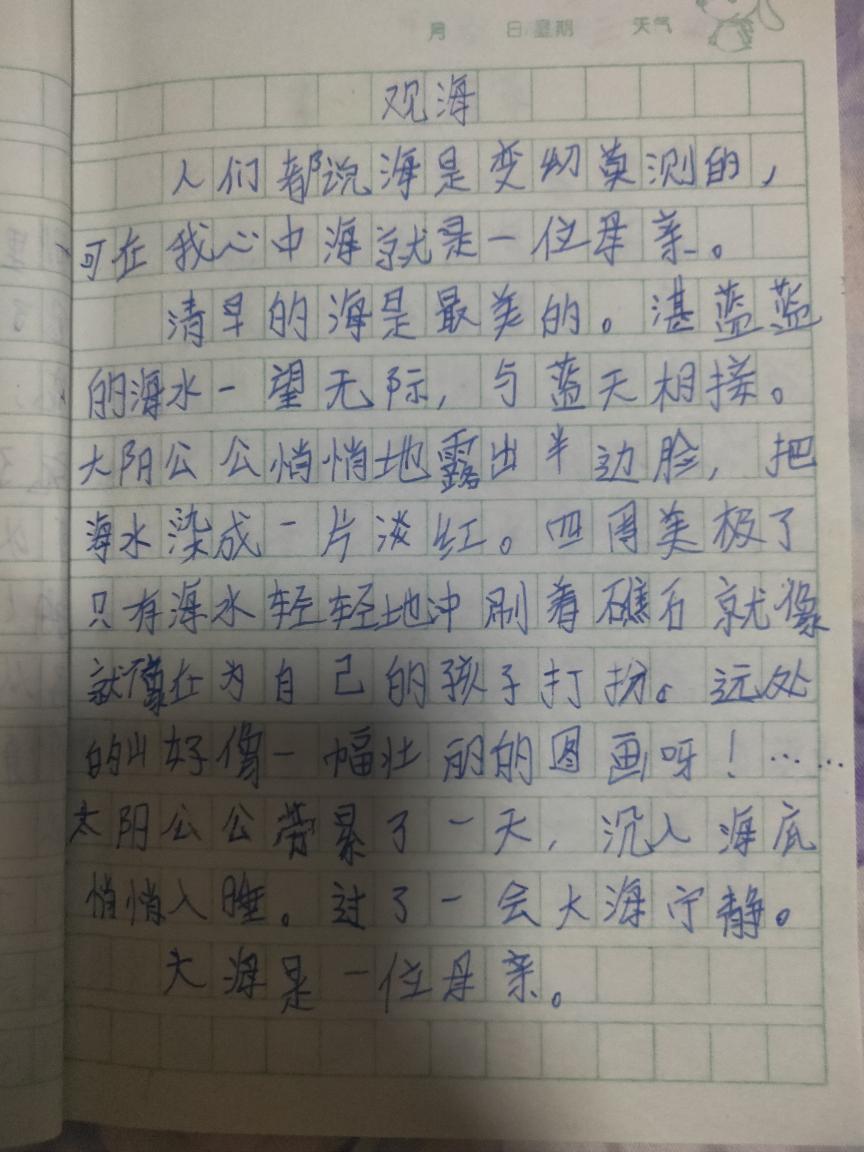 月 日 星期 天气
观海
人们都说海是变幼莫测的，
可在我心中海就是一位母亲。
清早的海是最美的。湛蓝蓝
的海水一望无际，与蓝天相接。
大阳公公悄悄地露出半边脸，把
海水染成一片淡红。四周美极了
只有海水轻轻地冲刷着礁石就像
就像在为自己的孩子打扮。远处
的山好像一幅壮丽的图画呀！……
太阳公公劳累了一天，沉入海底
悄悄入睡。过了一会大海宁静。
大海是一位母亲。